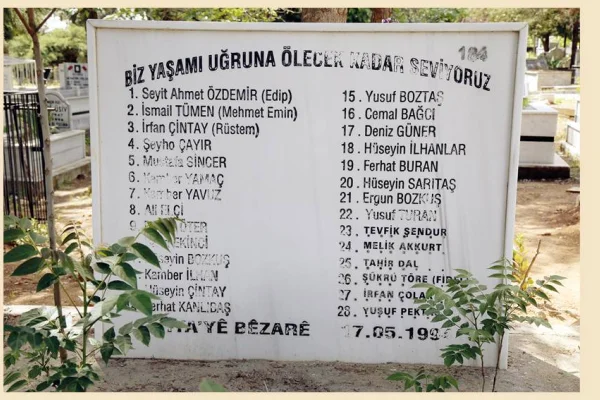 184
BİZ YAŞAMI UĞRUNA ÖLECEK KADAR SEVİYORUZ
1. Seyit Ahmet ÖZDEMİR (Edip)
2. İsmail TÜMEN (Mehmet Emin)
3. İrfan ÇİNTAY (Rüstem)
4. Şeyho ÇAYIR
5. Mustafa SİNCER
6. Kamber YAMAÇ
7. Kamber YAVUZ
8. Ali ELÇİ
9.
EKİNCİ
BOZKUŞ
Kamber İLHAN
Hüseyin ÇİNTAY
Ferhat KANLIBAŞ
15. Yusuf BOZTAŞ
16. Cemal BAĞCI
17. Deniz GÜNER
18. Hüseyin İLHANLAR
19. Ferhat BURAN
20. Hüseyin SARITAŞ
21. Ergun BOZKUŞ
22. Yusuf TURAN
23. TEVFİK ŞENDUR
24. MELİK AKKURT
25. TAHİR DAL
26. ŞÜKRÜ TÖRE
27. İRFAN
28. YUSUF
BÊZARÊ
17.05.199